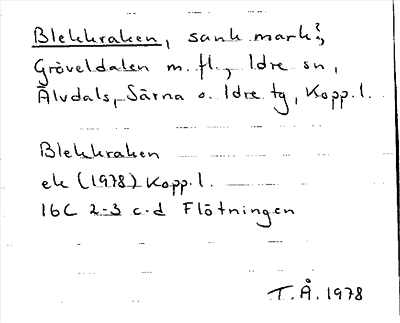 Blekkraken, sank mark?,
Gröveldalen m. fl., Idre sn,
Älvdals, Särna o. Idre tg, Kopp. l.
Blekkraken
ek (1978) Kopp. l.
16C 2-3 c-d Flötningen
T.Å. 1978